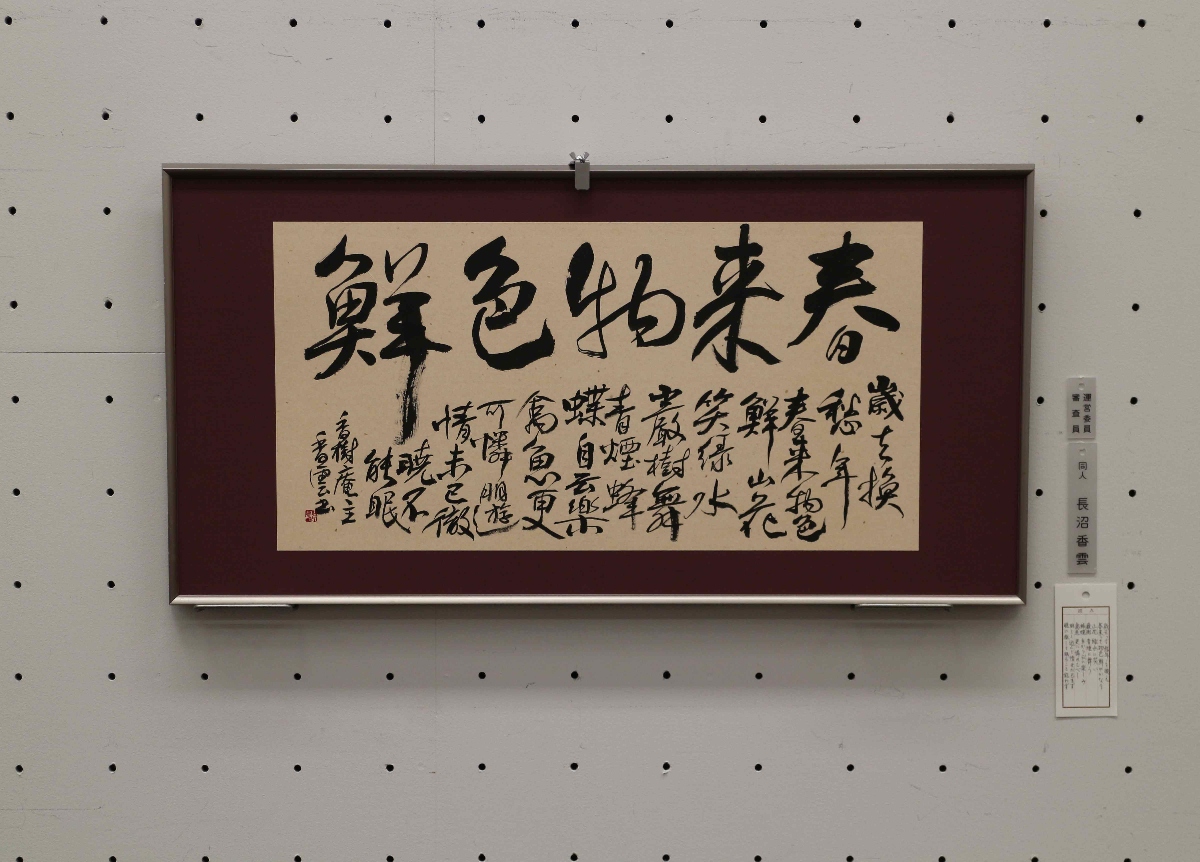 春来物色鮮
歳去換
愁年
春来物色
鮮山花
笑緑水
巌樹舞
青煙蜂
蝶自云樂
禽魚更
可憐朋遊
情未已徹
暁不
能眠
香樹庵主
香雲書
運営委員
審査員
同人 長沼香雲